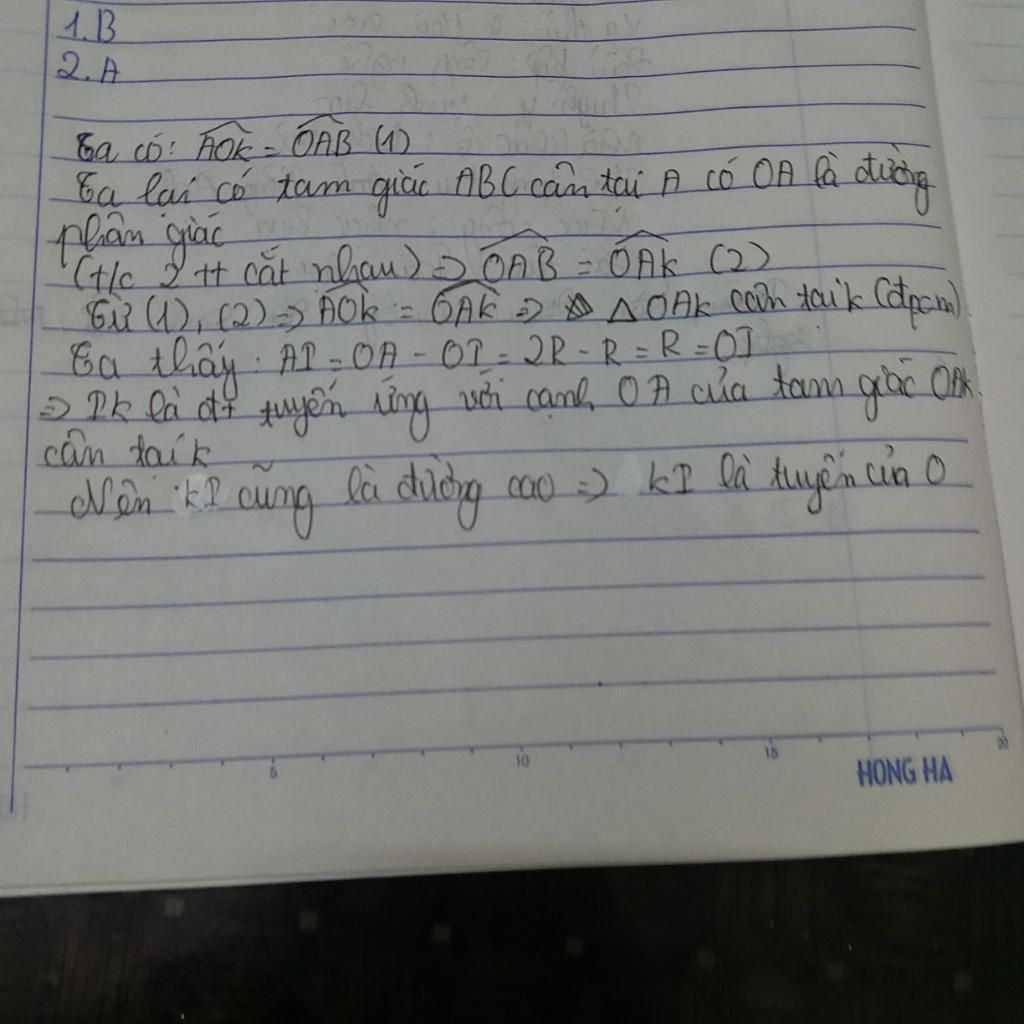 1.B
2.A
Ta có: AOK = OAB (1)
Ta lại có tam giác ABC cân tại A có OA là đường
phân giác
(t/c 2 tt cắt nhau) => OAB = OAK (2)
Từ (1), (2) => AOK = OAK => △ OAK cân tại K (đpcm)
Ta thấy: AI = OA - OI = 2R - R = R = OI
=> IK là đt tuyến ứng với cạnh OA của tam giác OAK
cân tại K
Nên KI cũng là đường cao => KI là tuyến của O
5 10 15 20
HONG HA